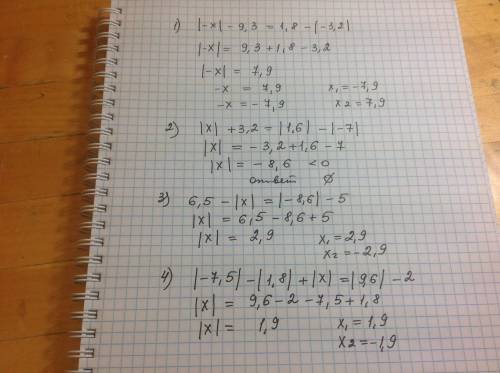 1) |-x| - 9,3 = 1,8 - |-3,2|
|-x| = 9,3 + 1,8 - 3,2
|-x| = 7,9
-x = 7,9 x₁ = -7,9
-x = -7,9 x2 = 7,9
2) |x| + 3,2 = |1,6| - |-7|
|x| = -3,2 + 1,6 - 7
|x| = -8,6 < 0
ответ ∅
3) 6,5 - |x| = |-8,6| - 5
|x| = 6,5 - 8,6 + 5
|x| = 2,9 x₁ = 2,9
x₂ = -2,9
4) |-7,5| - |1,8| + |x| = |9,6| - 2
|x| = 9,6 - 2 - 7,5 + 1,8
|x| = 1,9 x₁ = 1,9
x2 = -1,9